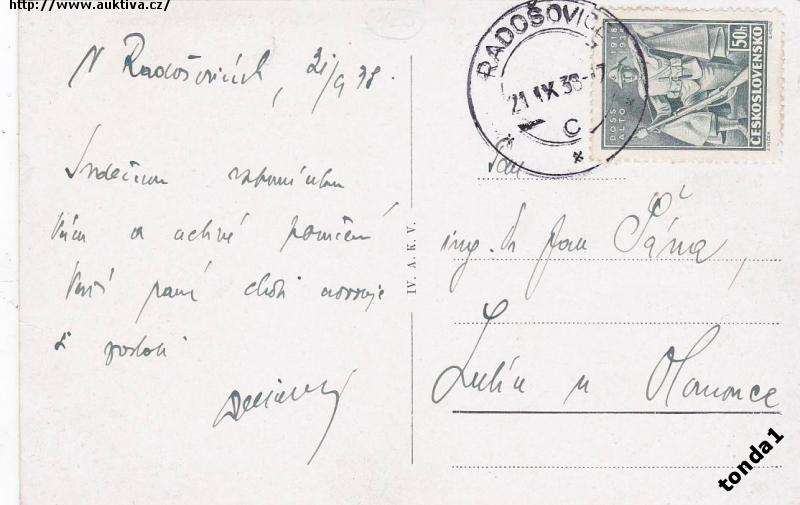 http://www.auktiva.cz/
V Radošovicích, 21/9 38.
Srdečnou vzpomínku
Vám a uctivé poručení
Vaší paní choti
IV. A. K. V.
RADOŠOVICE
21 IX 38-17
C
1918
1938
DOSS
ALTO
50h
ČESKOSLOVENSKO
Pan
ing. Jan Pána,
Lutín u Olomouce
tonda1